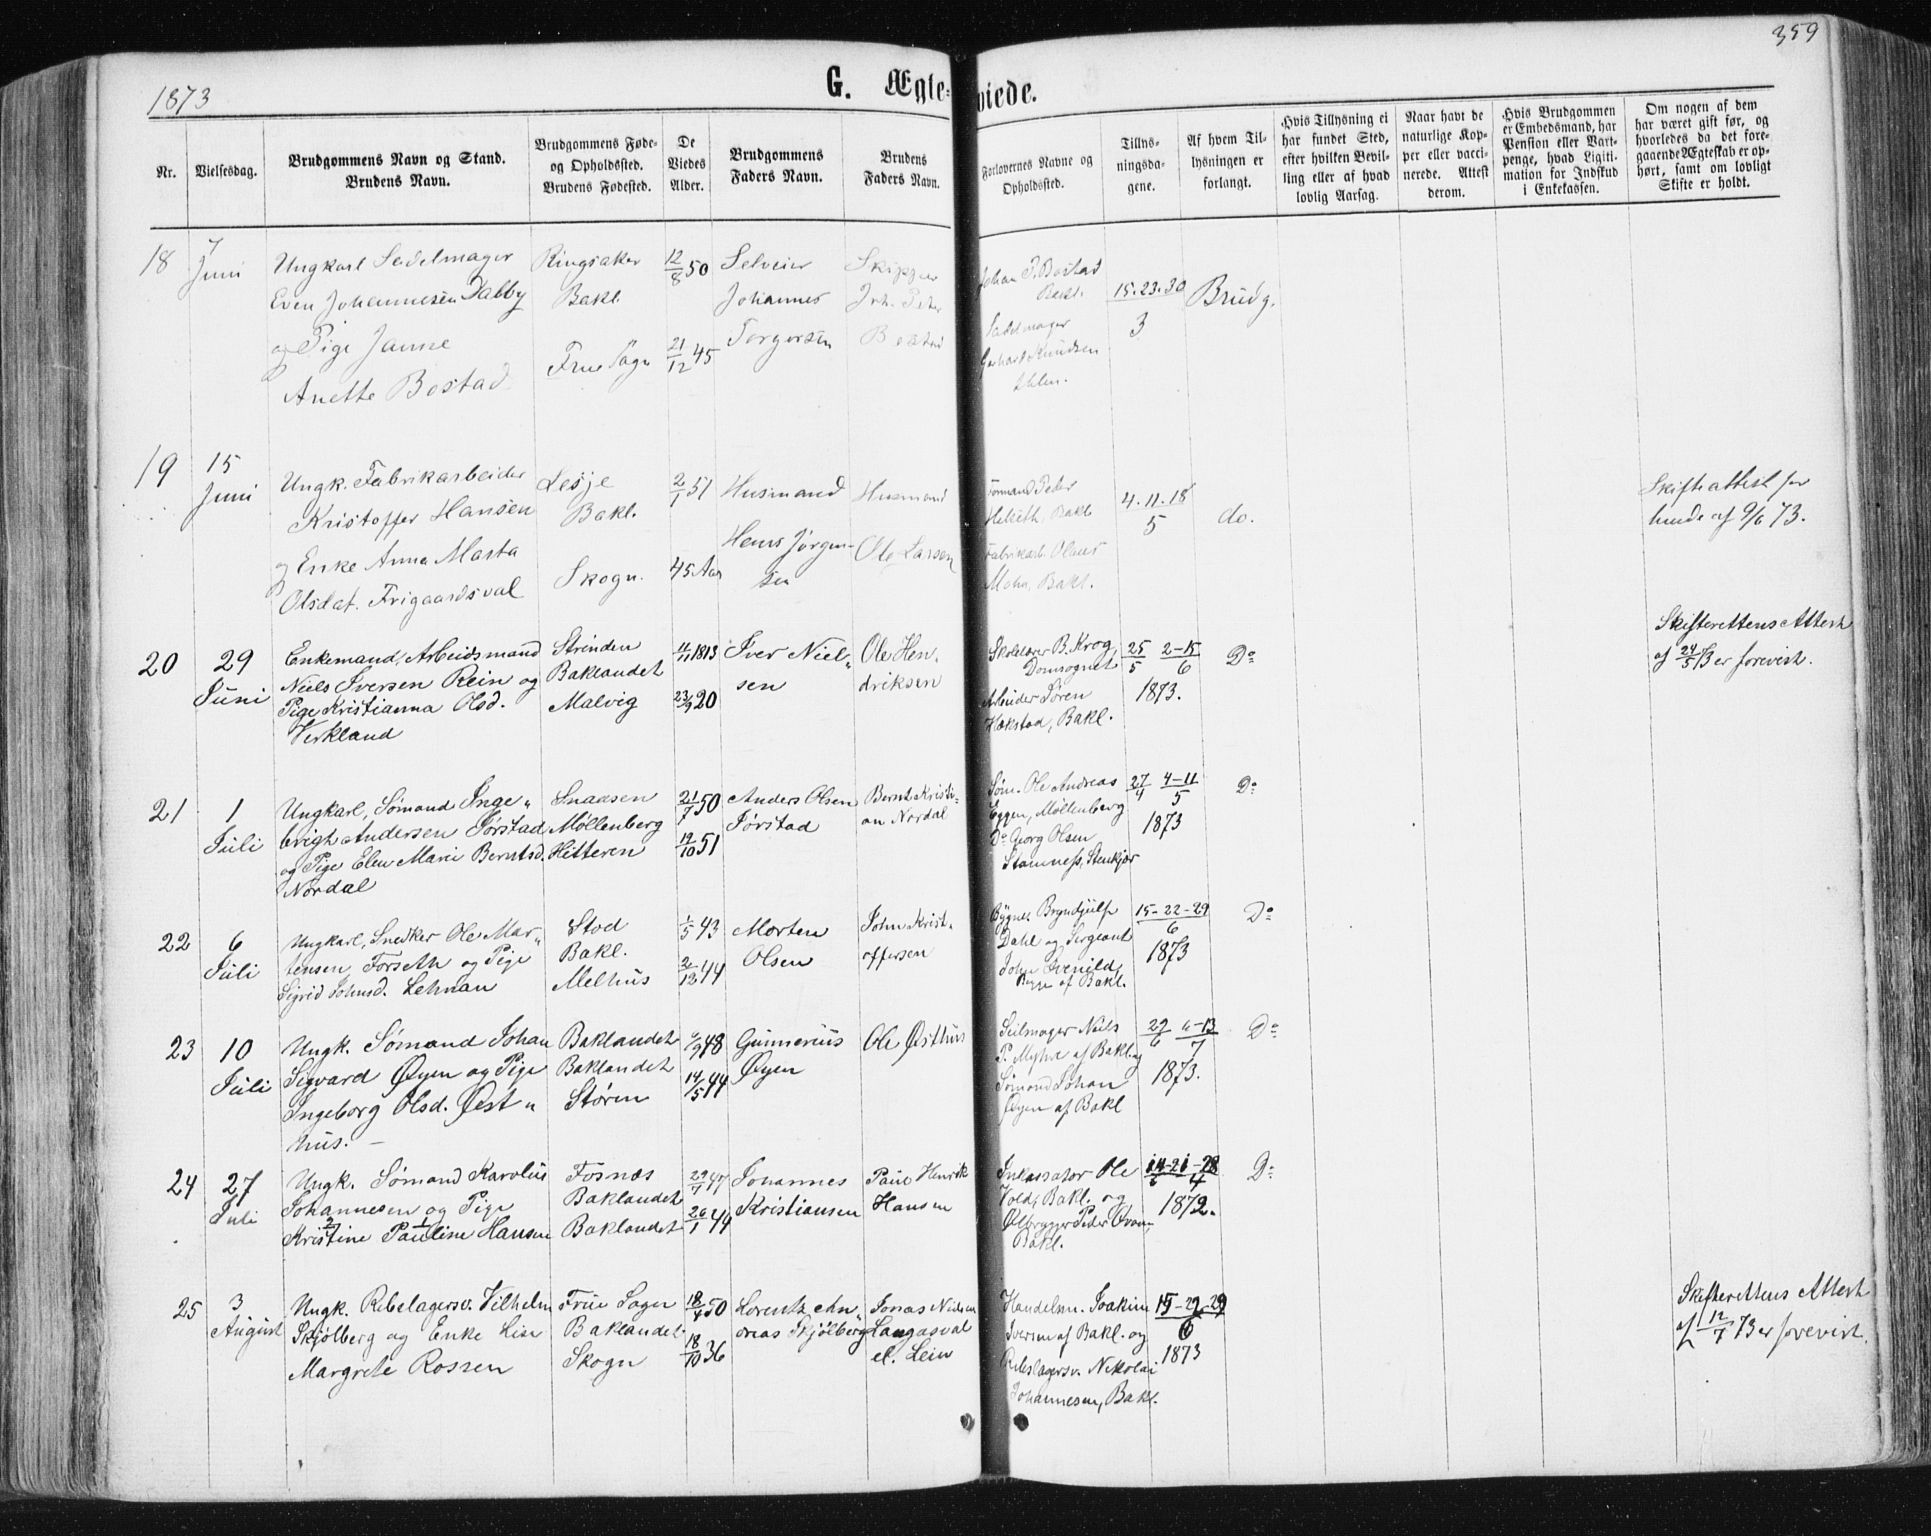 359
1873
G. Ægteviede.
Nr.
Vielsesdag.
Brudgommens Navn og Stand.
Brudens Navn.
Brudgommens Føde-
og Opholdssted.
Brudens Fødested.
De
Viedes
Alder.
Brudgommens
Faders Navn.
Brudens
Faders Navn.
Forlovernes Navne og
Opholdssted.
Tillys-
ningsda-
gene.
Af hvem Til-
lysningen er
forlangt.
Hvis Tillysning ei
har fundet Sted,
efter hvilken Bevil-
ling eller af hvad
lovlig Aarsag.
Naar havt de
naturlige Kop-
per eller vacci-
nerede. Attest
derom.
Hvis Brudgommen
er Embedsmand, har
Pension eller Vart-
penge, hvad Ligiti-
mation for Indskud
i Enkekassen.
Om nogen af dem
har været gift før, og
hvorledes da det fore-
gaaende Ægteskab er op-
hørt, samt om lovligt
Skifte er holdt.
18
7
Juni
Ungkarl Sadelmager
Even Johannesen Dabby
og Pige Janne
Anette Bostad
Ringsaker
Bakl.
Frue Sogn
12/8 50
21/12 45
Selveier
Johannes
Torgersen
Skipper
Joh. Peter
Bostad
Johan P. Bostad
Bakl.
Sadelmager
Gerhard Knudsen
Ihlen.
15. 23. 30
3
Brudg.
19
15
Juni
Ungk. Fabrikarbeider
Kristoffer Hansen
og Enke Anna Marta
Olsdat. Frigaardsval
Lesje
Bakl.
Skogn.
2/1 51
45 Aar
Husmand
Hans Jørgen-
sen
Husmand
Ole Larsen
Formand Peder
Bakl.
Fabrikarb.
Moha, Bakl.
4. 11. 18
5
do.
Skifteattest for
hende af 9/6 73.
20
29
Juni
Enkemand, Arbeidsmand
Niels Iversen Rein og
Pige Kristianna Olsd.
Verkland
Strinden
Baklandet
Malvig
11/11 1813
23/9 20
Iver Niel-
sen
Ole Hen-
driksen
B. Krog,
Domsognet
Arbeider Søren
Hakstad, Bakl.
25/5 2-15/6
1873.
Do
Skifterettens Attest
af 24/5 73 er forevist.
21
1
Juli
Ungkarl, Sømand Inge-
brigt Andersen Tørstad
og Pige Elen Marie Berntsd.
Nordal
Snaasen
Møllenberg
Hitteren
21/7 50
19/10 51
Anders Olsen
Tørstad
Bernt Kristi-
an Nordal
Søm. Ole Andreas
Eggen, Møllenberg
Do Georg Olsen
Stamness, Stenkjær
27/4 4-11/5
1873
Do
22
6
Juli
Ungkarl, Snedker Ole Mar-
tensen Forseth og Pige
Sigrid Johnsd. Lehnan
Stod
Bakl.
Melhus
1/5 43
2/12 44
Morten
Olsen
John Krist-
offersen
Bygm. Bryndjulf
Dahl og Sergeant
John
Begge af Bakl.
15-22-29
6
1873
Do
23
10
Juli
Ungk. Sømand Johan
Sigvard Øyen og Pige
Ingeborg Olsd. Øst-
hus. –
Baklandet
Baklandet
Støren
6/9 48
14/5 44
Gunnerius
Øyen
Ole Østhus
Seilmager Niels
P. Myhre af Bakl. og
Sømand Johan
Øyen af Bakl
29/6 6-13/7
1873.
Do
24
27
Juli
Ungk. Sømand Karolus
Johannesen og Pige
Kristine Pauline Hansen
Fosnæs
Baklandet
Baklandet
29/7 47
26/1 44
Johannes
Kristiansen
Paul Henrik
Hansen
Inkassator Ole
Vold, Bakl. og
Ølbrygger Peder Kvam,
Bakl.
14-21-28
1872.
Do
25
3
August
Ungk. Rebslagersv. Vilhelm
Skjølberg og Enke Lise
Margrete Rossen
Frue Sogn
Baklandet.
Skogn
18/4 50
18/10 36
Lorentz An-
dreas Skjølberg
Jonas Nielsen
Langasval
el. Lein
Handelsm. Joakim
Iversen af Bakl. og
Rebslagersv. Nikolai
Johannesen, Bakl.
15-22-29
6
1873
Skifterettens Attest
af 12/7 73 er forevist.